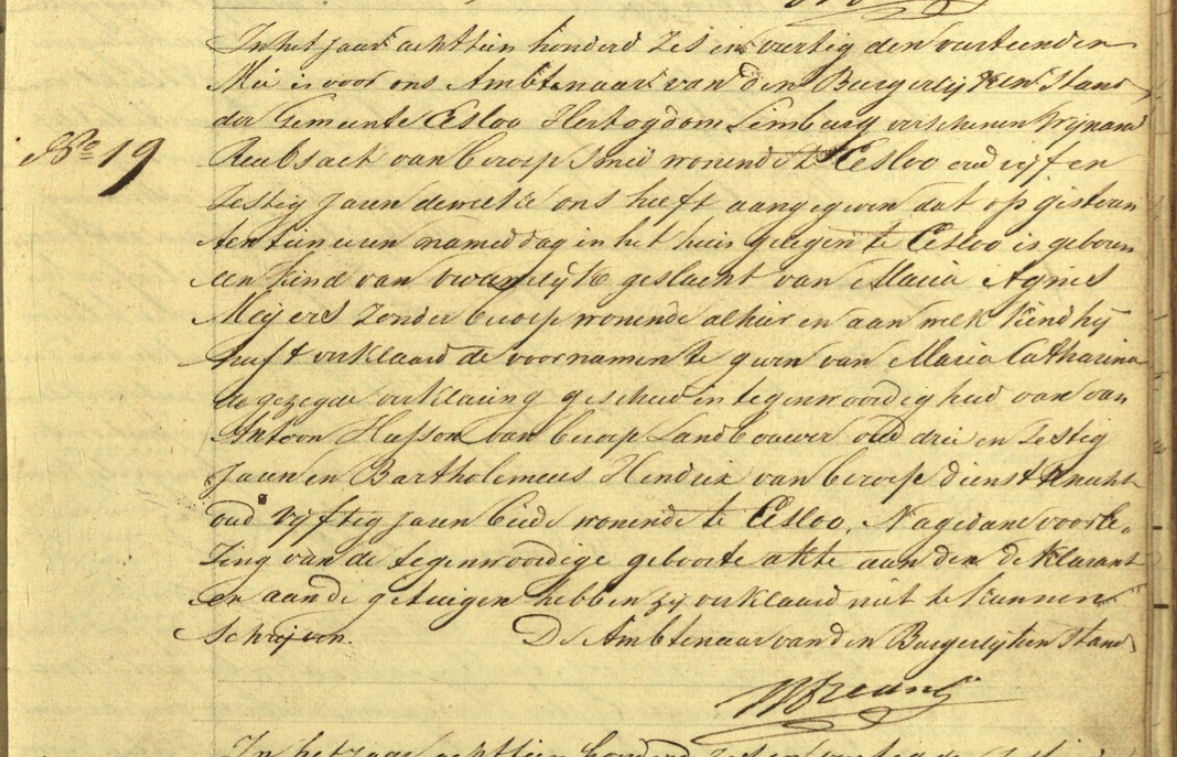 In het jaar achttien honderd zes en veertig den veerteenden
Mei is voor ons Ambtenaar van den Burgerlijken Stand
der Gemeente Elsloo Hertogdom Limburg verschenen Wijnand
No 19
Reubsaet van beroep Smid wonende te Elsloo oud vijf en
zestig Jaren dewelke ons heeft aangegeven dat op gisteren
ten tien uren namiddag in het huis gelegen te Elsloo is geboren
een kind van vrouwelijke geslacht van Maria Agnes
Meijers zonder beroep wonende alhier en aan welk kind hij
heeft verklaard de voornamen te geven van Maria Catharina
de gezegde verklaring geschied in tegenwoordigheid van van
Antoon Hessen van beroep Landbouwer oud drie en zestig
Jaren en Bartholemeus Hendrix van beroep dienstknecht
oud vijftig jaren beide wonende te Elsloo. Na gedane voorle=
zing van de tegenwoordige geboorte akte aan den deklarant
en aan de getuigen hebben zij verklaard niet te kunnen
Schrijven. De Ambtenaar van den Burgerlijken Stand
In het jaar achttien honderd zes en veertig de